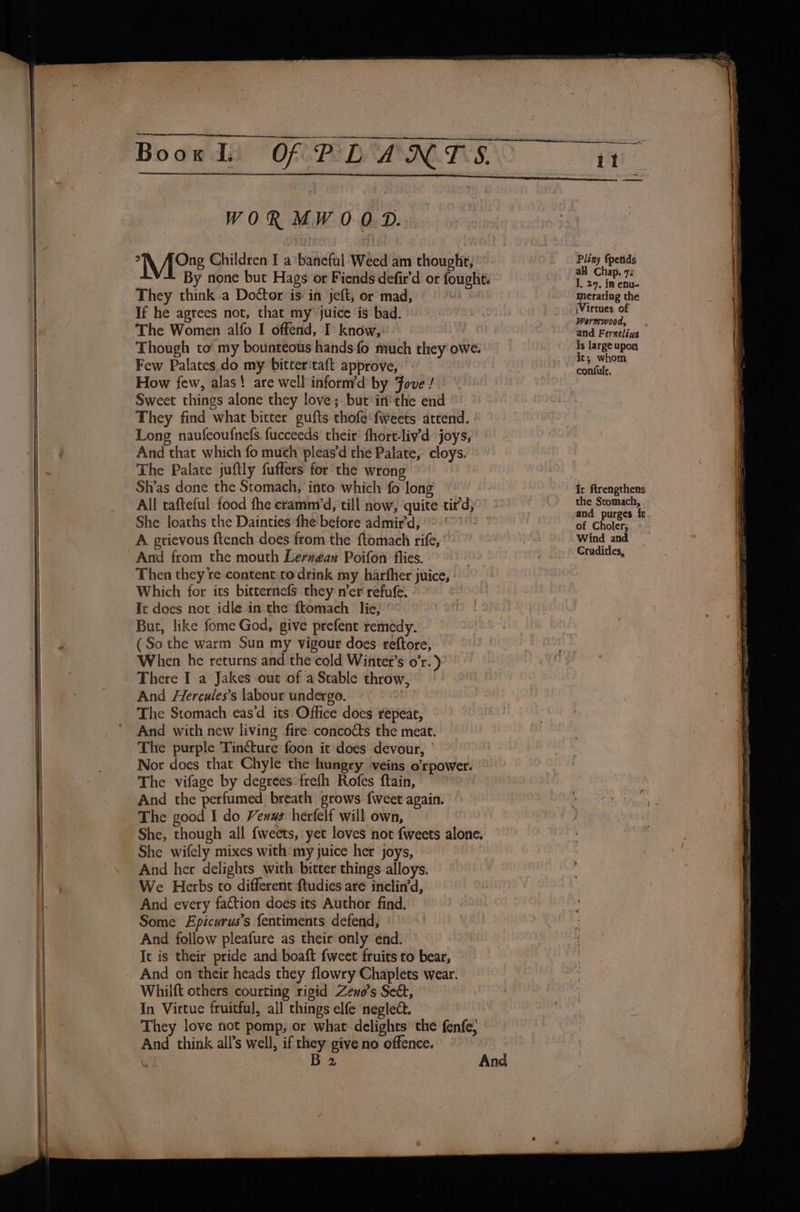 Book I. Of PLANTS. 11
WORMWOOD.
'MOng Children I a baneful Weed am thought,
By none but Hags or Fiends deſir'd or ſought.
They think a Doctor is in jeſt, or mad,
If he agrees not, that my juice is bad.
The Women alſo I offend, I know,
Though to my bounteous hands ſo much they owe.
Few Palates do my bitter taſt approve,
How few, alas! are well inform'd by Jove!
Sweet things alone they love; but in the end
They find what bitter guſts thoſe ſweets attend.
Long nauſeouſneſs ſucceeds their ſhort-liv'd joys,
And that which ſo much pleas'd the Palate, cloys.
The Palate juſtly ſuffers for the wrong
Sh'as done the Stomach, into which ſo long
All taſteful food ſhe cramm'd, till now, quite tir'd,
She loaths the Dainties ſhe before admir'd,
A grievous ſtench does from the ſtomach riſe,
And from the mouth Lernæan Poiſon flies.
Then they're content to drink my harſher juice,
Which for its bitterneſs they n'er refuſe.
It does not idle in the ſtomach lie,
But, like ſome God, give preſent remedy.
(So the warm Sun my vigour does reſtore,
When he returns and the cold Winter's o'r.)
There I a Jakes out of a Stable throw,
And Hercules's labour undergo.
The Stomach eas'd its Office does repeat,
And with new living fire concocts the meat.
The purple Tincture ſoon it does devour,
Nor does that Chyle the hungry veins o'rpower.
The viſage by degrees freſh Roſes ſtain,
And the perfumed breath grows ſweet again.
The good I do Venus herſelf will own,
She, though all ſweets, yet loves not ſweets alone.
She wiſely mixes with my juice her joys,
And her delights with bitter things alloys.
We Herbs to different ſtudies are inclin'd,
And every faction does its Author find.
Some Epicurus's ſentiments defend,
And follow pleaſure as their only end.
It is their pride and boaſt ſweet fruits to bear,
And on their heads they flowry Chaplets wear.
Whilſt others courting rigid Zeno's Sect,
In Virtue fruitful, all things elſe neglect.
They love not pomp, or what delights the ſenſe,
And think all's well, if they give no offence.
B 2 And
Pliny ſpends
all Chap. 7.
l. 27. in enu-
merating the
Virtues of
Wormwood,
and Fernelius
is large upon
it; whom
conſult.
It ſtrengthens
the Stomach,
and purges it
of Choler,
Wind and
Crudities,